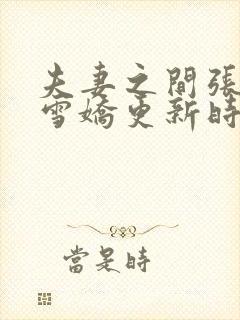 夫妻之間張
雪嬌更新時
當是時